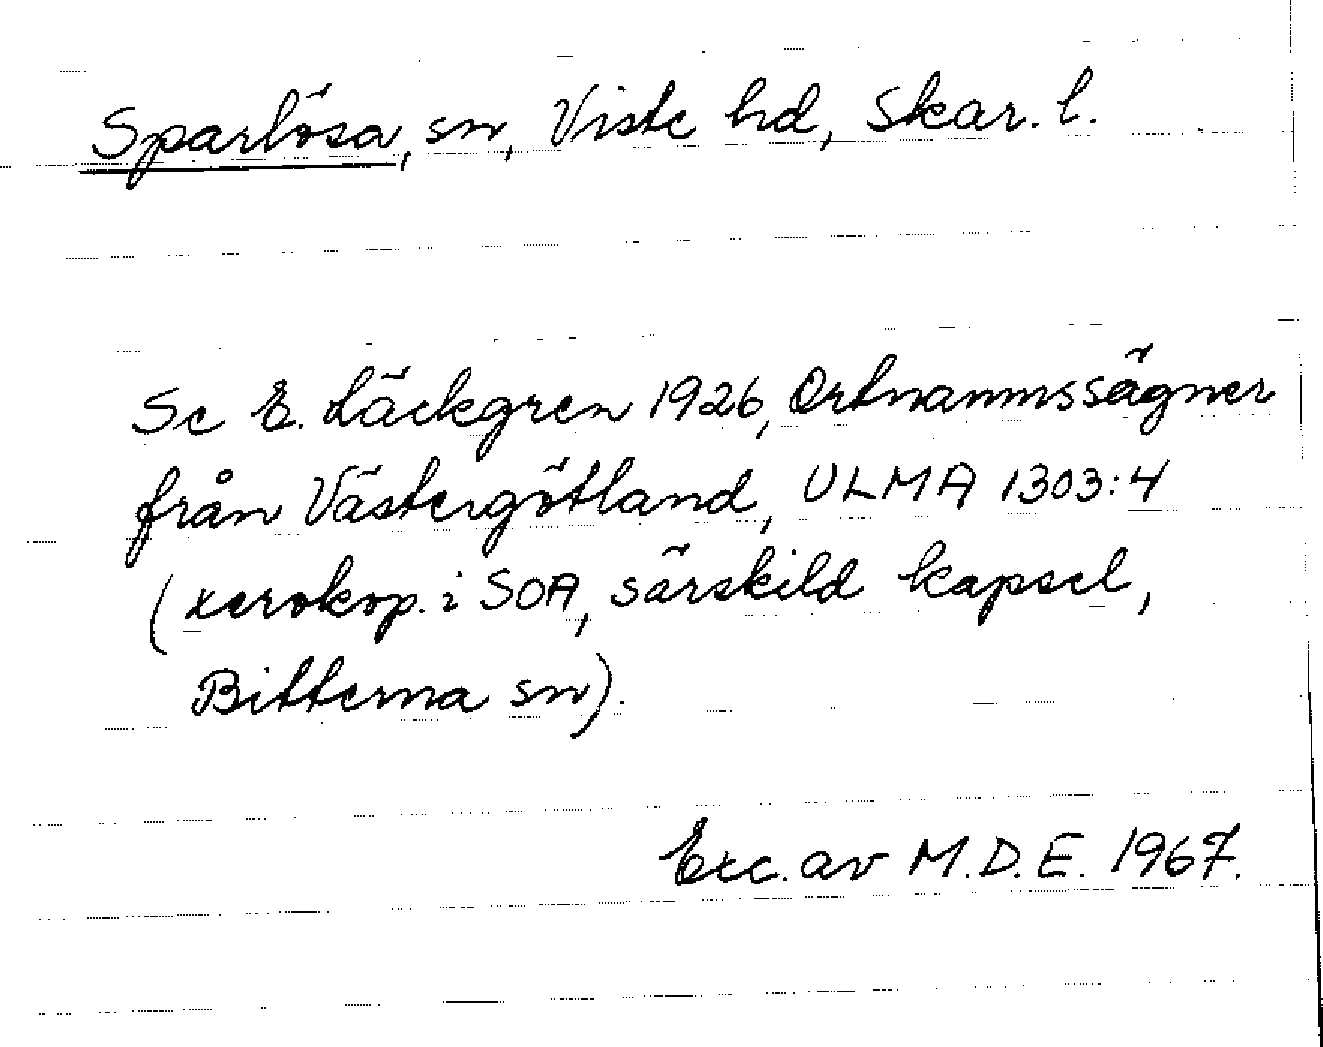 Sparlösa, sn, Viste hd, Skar. l.
Se E. Läckgren 1926, Ortnamnssägner
från Västergötland, ULMA 1303:4
(xerokop. i SOA, särskild kapsel,
Bitterna sn).
Exc. av M.D.E. 1967.